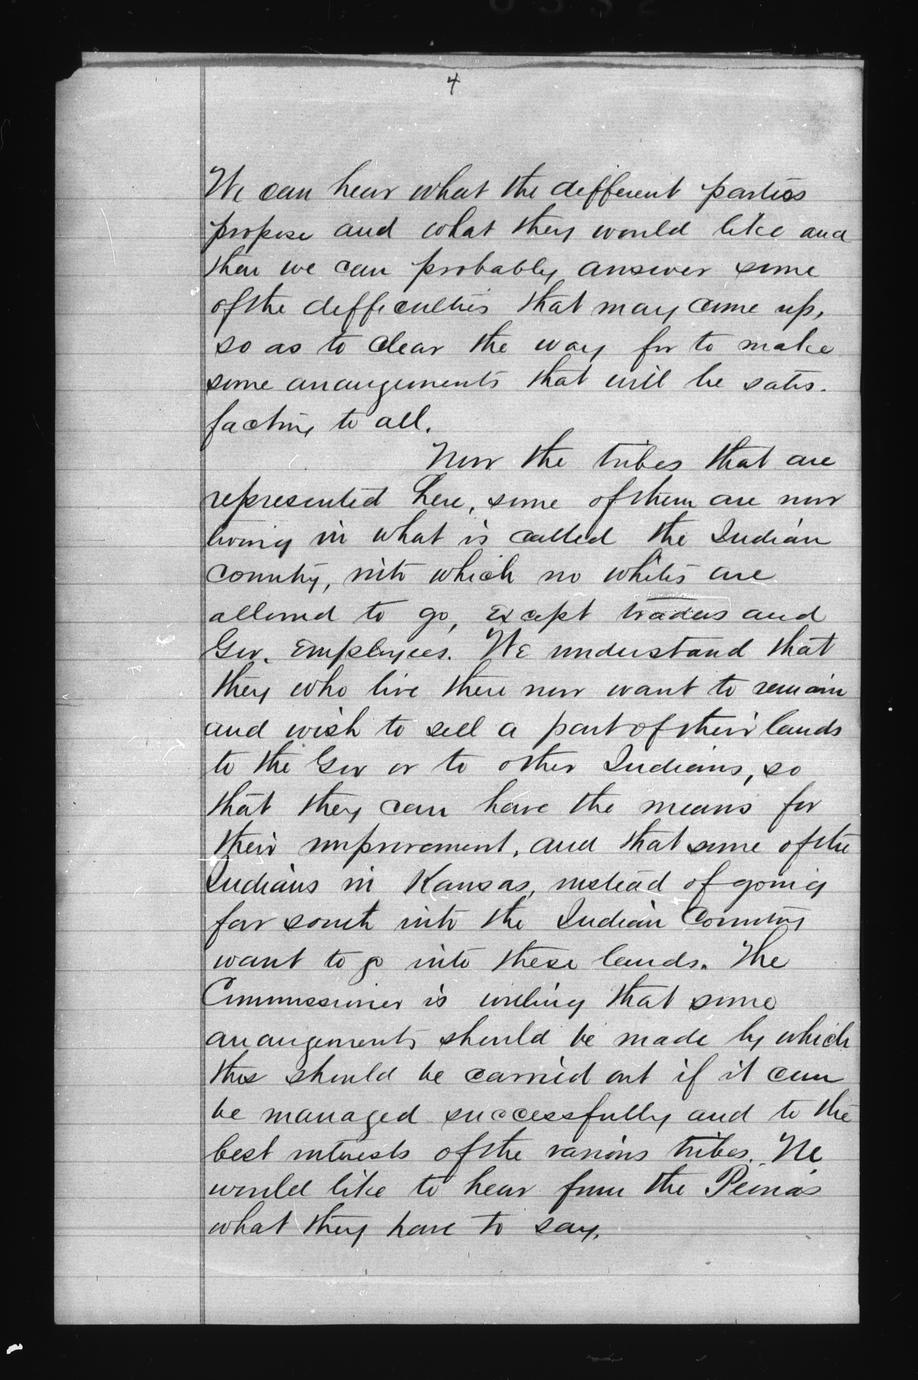 4
We can hear what the different parties
propose and what they would like and
then we can probably answer some
of the difficulties that may come up,
so as to clear the way for to make
some arrangements that will be satis-
factory to all.
Now the tribes that are
represented here, some of them are now
living in what is called the Indian
Country, into which no whites are
allowed to go, Except traders and
Gov. Employees. We understand that
they who live there now want to remain
and wish to sell a part of their lands
to the Gov or to other Indians, so
that they can have the means for
their improvement, and that some of the
Indians in Kansas, instead of going
far south into the Indian Country
want to go into these lands. The
Commissioner is willing that some
arrangements should be made by which
this should be carried out if it can
be managed successfully and to the
best interests of the various tribes. We
would like to hear from the Peorias
what they have to say.